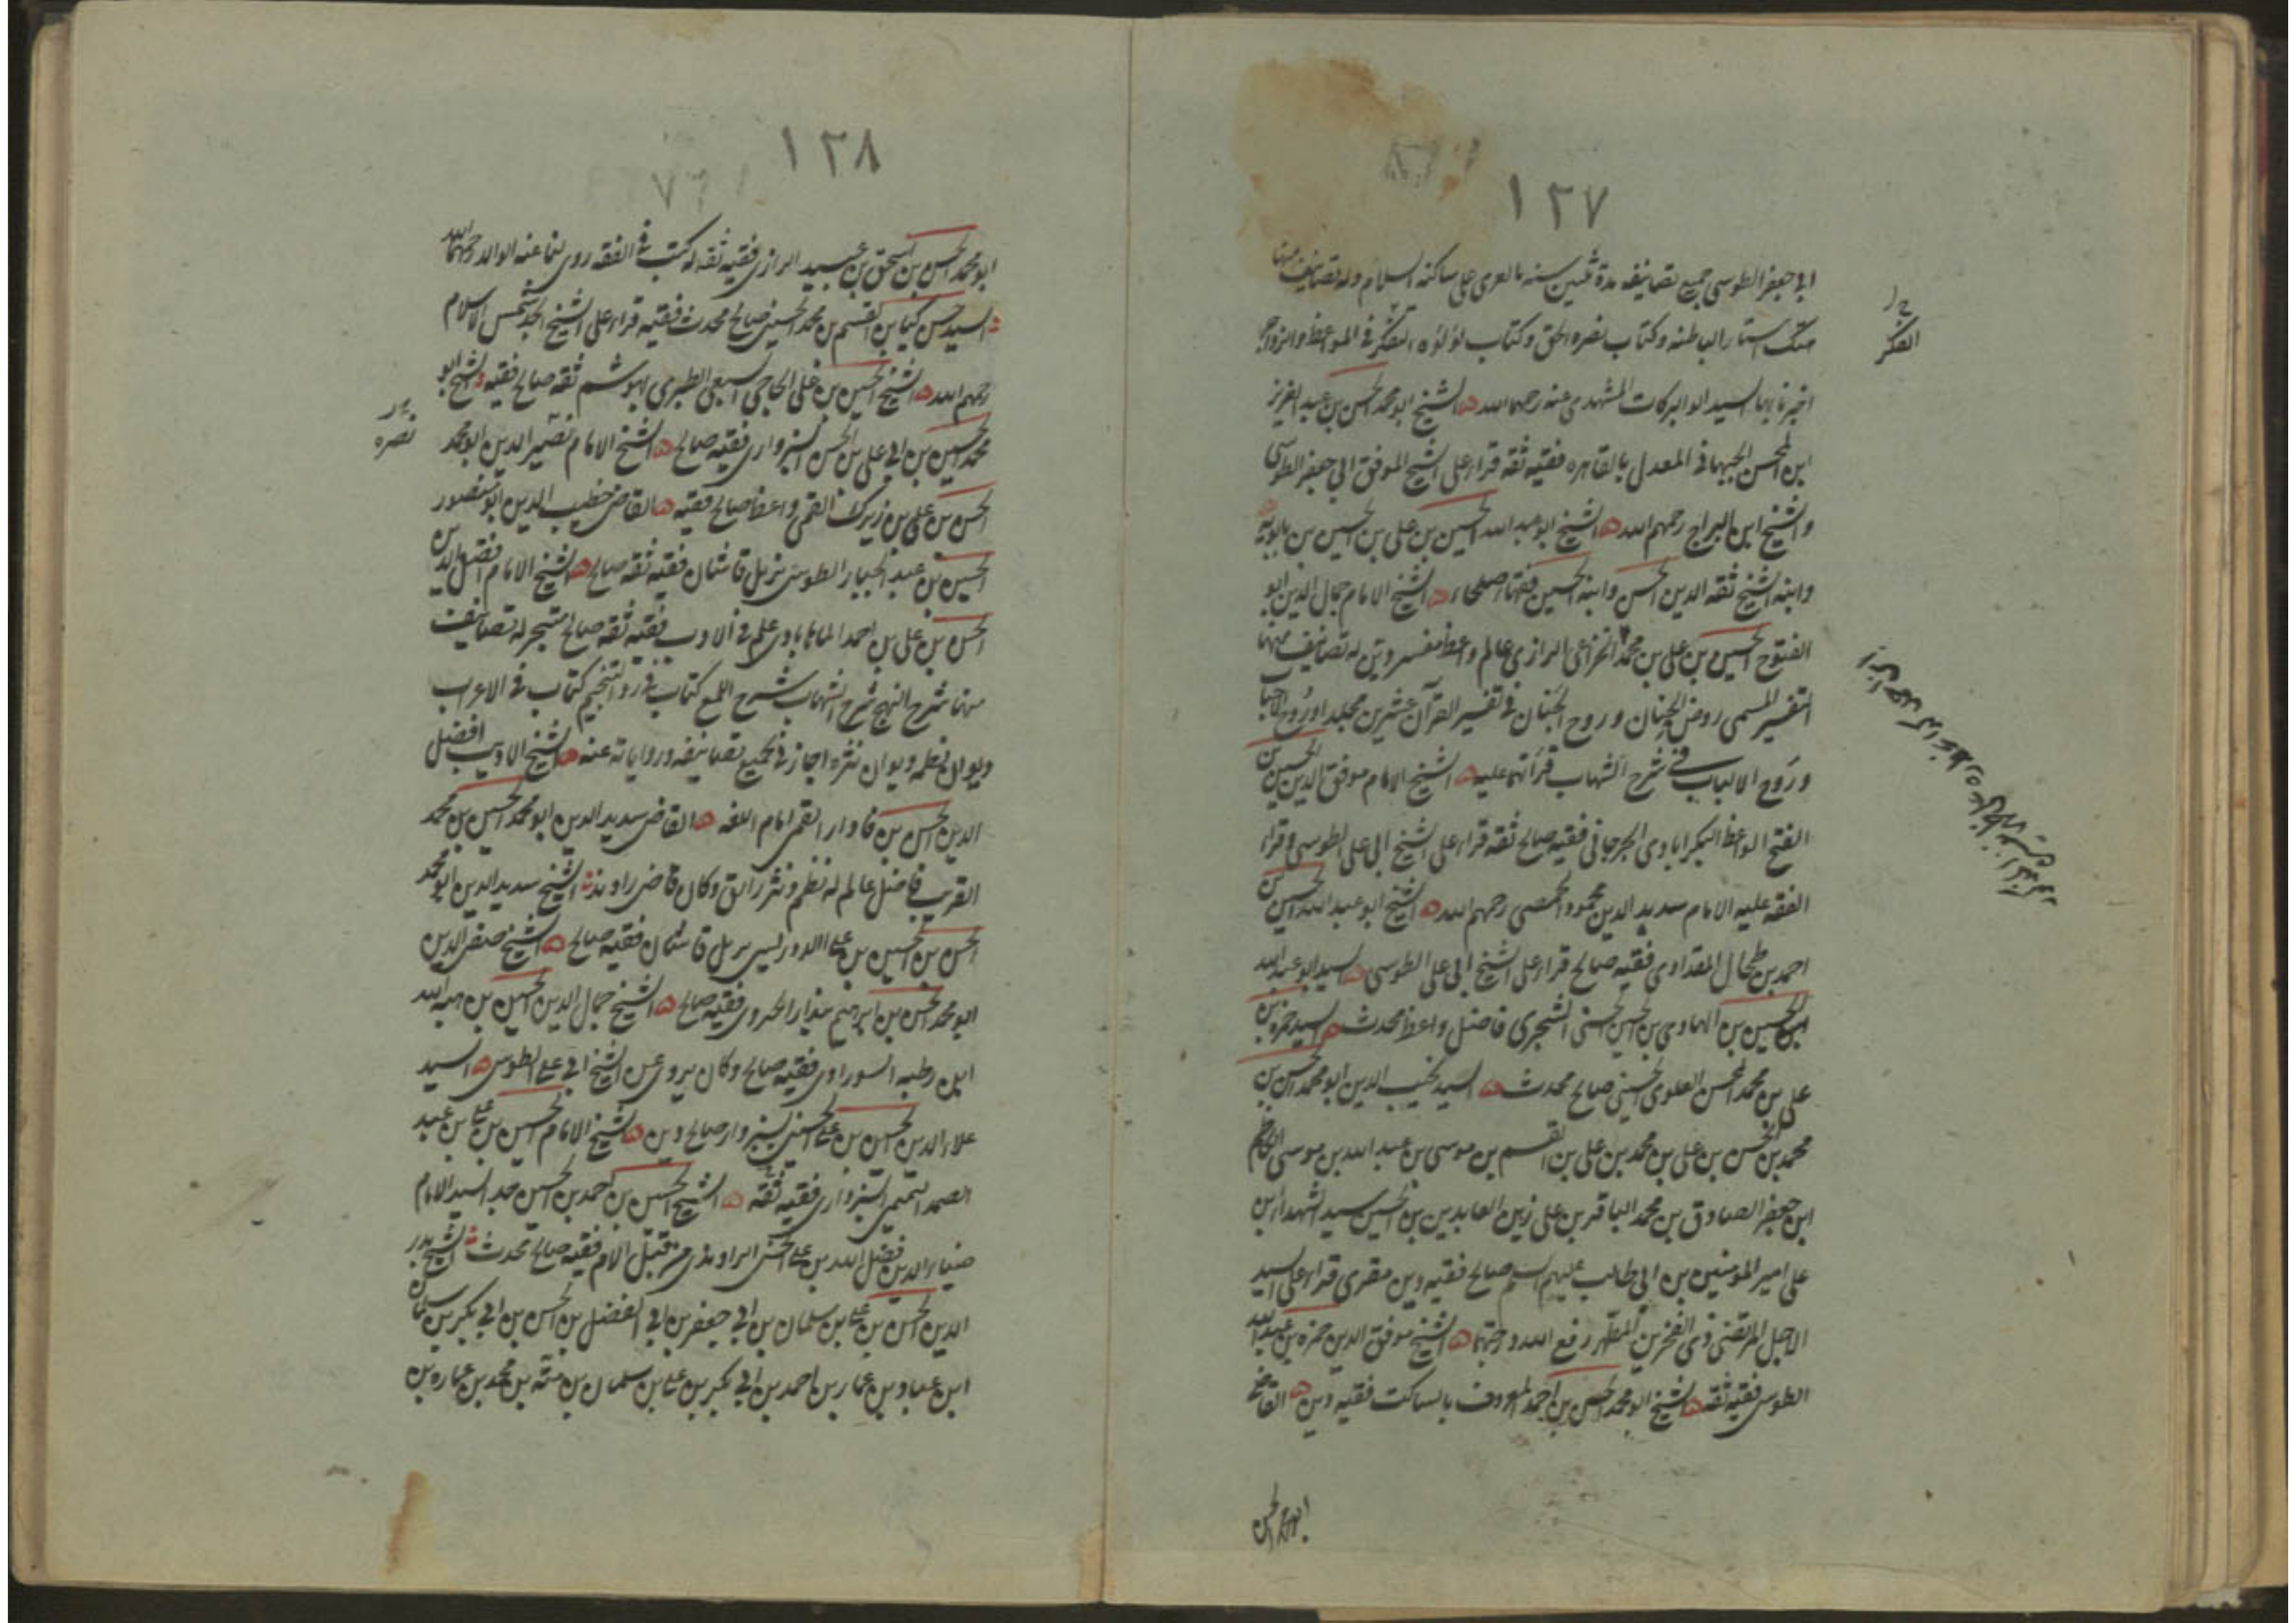 ١٢٧
ابي جعفر الطوسي جميع تصانيفه مدة ثلثين سنه بالغري على ساكنه السلام وله تصانيف منها
هتك استار الباطنه وكتاب نصره الحق وكتاب لؤلؤه التفكر في المواعظ والزواجر
اخبرنا بها السيد ابو البركات المشهدي عنه رحمهما الله ه الشيخ ابو محمد الحسن بن عبد العزيز
ابن المحسن الجبهاني المعدل بالقاهره فقيه ثقه قرأ على الشيخ الموفق ابي جعفر الطوسي
والشيخ ابن البراج رحمهم الله ه الشيخ ابو عبد الله الحسين بن علي بن الحسين بن بابويه
وابنه الشيخ ثقه الدين الحسن وابنه الحسين فقهاء صلحاء ه الشيخ الامام جمال الدين ابو
الفتوح الحسين بن علي بن محمد الخزاعي الرازي عالم واعظ مفسر دين له تصانيف منها
التفسير المسمى روض الجنان وروح الجنان في تفسير القرآن عشرين مجلدا وروح الاحباب
وروح الالباب في شرح الشهاب قرأتهما عليه ه الشيخ الامام موفق الدين الحسين بن
الفتح الواعظ البكرابادي الجرجاني فقيه صالح ثقه قرأ على الشيخ ابي علي الطوسي وقرأ
الفقه عليه الامام سديد الدين محمود الحمصي رحمهم الله ه الشيخ ابو عبد الله الحسين بن
احمد بن طحال المقدادي فقيه صالح قرأ على الشيخ ابي علي الطوسي ه السيد ابو عبد الله
الحسين بن الهادي بن الحسين الحسني الشجري فاضل واعظ محدث ه السيد حمزه بن
علي بن محمد المحسن العلوي الحسيني صالح محدث ه السيد نجيب الدين ابو محمد الحسن بن
محمد بن الحسن بن علي بن محمد بن علي بن القسم بن موسى بن عبد الله بن موسى الكاظم
ابن جعفر الصادق بن محمد الباقر بن علي زين العابدين بن الحسين سيد الشهداء بن
علي امير المومنين بن ابي طالب عليهم السلام صالح فقيه دين مقري قرأ على السيد
الاجل المرتضى ذي الفخرين المطهر رفع الله درجتهما ه الشيخ موفق الدين حمزه بن عبد الله
الطوسي فقيه ثقه ه الشيخ ابو محمد الحسن بن احمد المعروف بالساكت فقيه دين ه القاضي
ابو محمد الحسن
التفكر
١٢٨
ابو محمد الحسن بن اسحق بن عبيد الرازي فقيه ثقه له كتب في الفقه روى لنا عنه الوالد رحمهما الله
السيد حسن كيا بن القسم بن محمد الحسيني صالح محدث فقيه قرأ على الشيخ الجد شمس الاسلام
رحمهم الله ه الشيخ الحسين بن علي الحاجي السبعي الطبري ابوشم ثقه صالح فقيه ه الشيخ ابو
محمد الحسين بن ابي علي بن الحسن السبزواري فقيه صالح ه الشيخ الامام نصير الدين ابو محمد
الحسن بن علي بن زيرك القمي واعظ صالح فقيه ه القاضي خطيب الدين ابو منصور
الحسين بن عبد الجبار الطوسي نزيل قاشان فقيه ثقه صالح ه الشيخ الامام افضل الدين
الحسن بن علي بن احمد الماهابادي علم في الادب فقيه ثقه صالح متبحر له تصانيف
منها شرح النهج شرح الشهاب شرح اللمع كتاب في رد التنجيم كتاب في الاعراب
ديوان نظمه ديوان نثره اجازني بجميع تصانيفه ورواياته عنه ه الشيخ الاديب افضل
الدين الحسن بن فادار القمي امام اللغه ه القاضي سديد الدين ابو محمد الحسين بن محمد
القريب فاضل عالم له نظم ونثر رائق وكان قاضي راوند الشيخ سديد الدين ابو محمد
الحسن بن الحسين بن علي الدوريستي نزيل قاشان فقيه صالح ه الشيخ صفي الدين
ابو محمد الحسن بن ابراهيم بندار الحيروي فقيه صالح ه الشيخ جمال الدين الحسين بن هبه الله
ابن رطبه السوراوي فقيه صالح وكان يروي عن الشيخ ابي علي الطوسي ه السيد
علاء الدين الحسين بن علي الحسيني بسبزوار صالح دين ه الشيخ الامام الحسين بن علي بن عبد
الصمد التميمي السبزواري فقيه ثقه ه الشيخ الحسين بن احمد بن الحسين جد السيد الامام
ضياء الدين فضل الله بن علي الحسني الراوندي من قبل الام فقيه صالح محدث الشيخ بدر
الدين الحسن بن علي بن سلمان بن ابي جعفر بن ابي الفضل بن الحسن بن ابي بكر بن سلمان
ابن عباد بن عمار بن احمد بن ابي بكر بن علي بن سلمان بن منبه بن محمد بن عماره بن
نصره